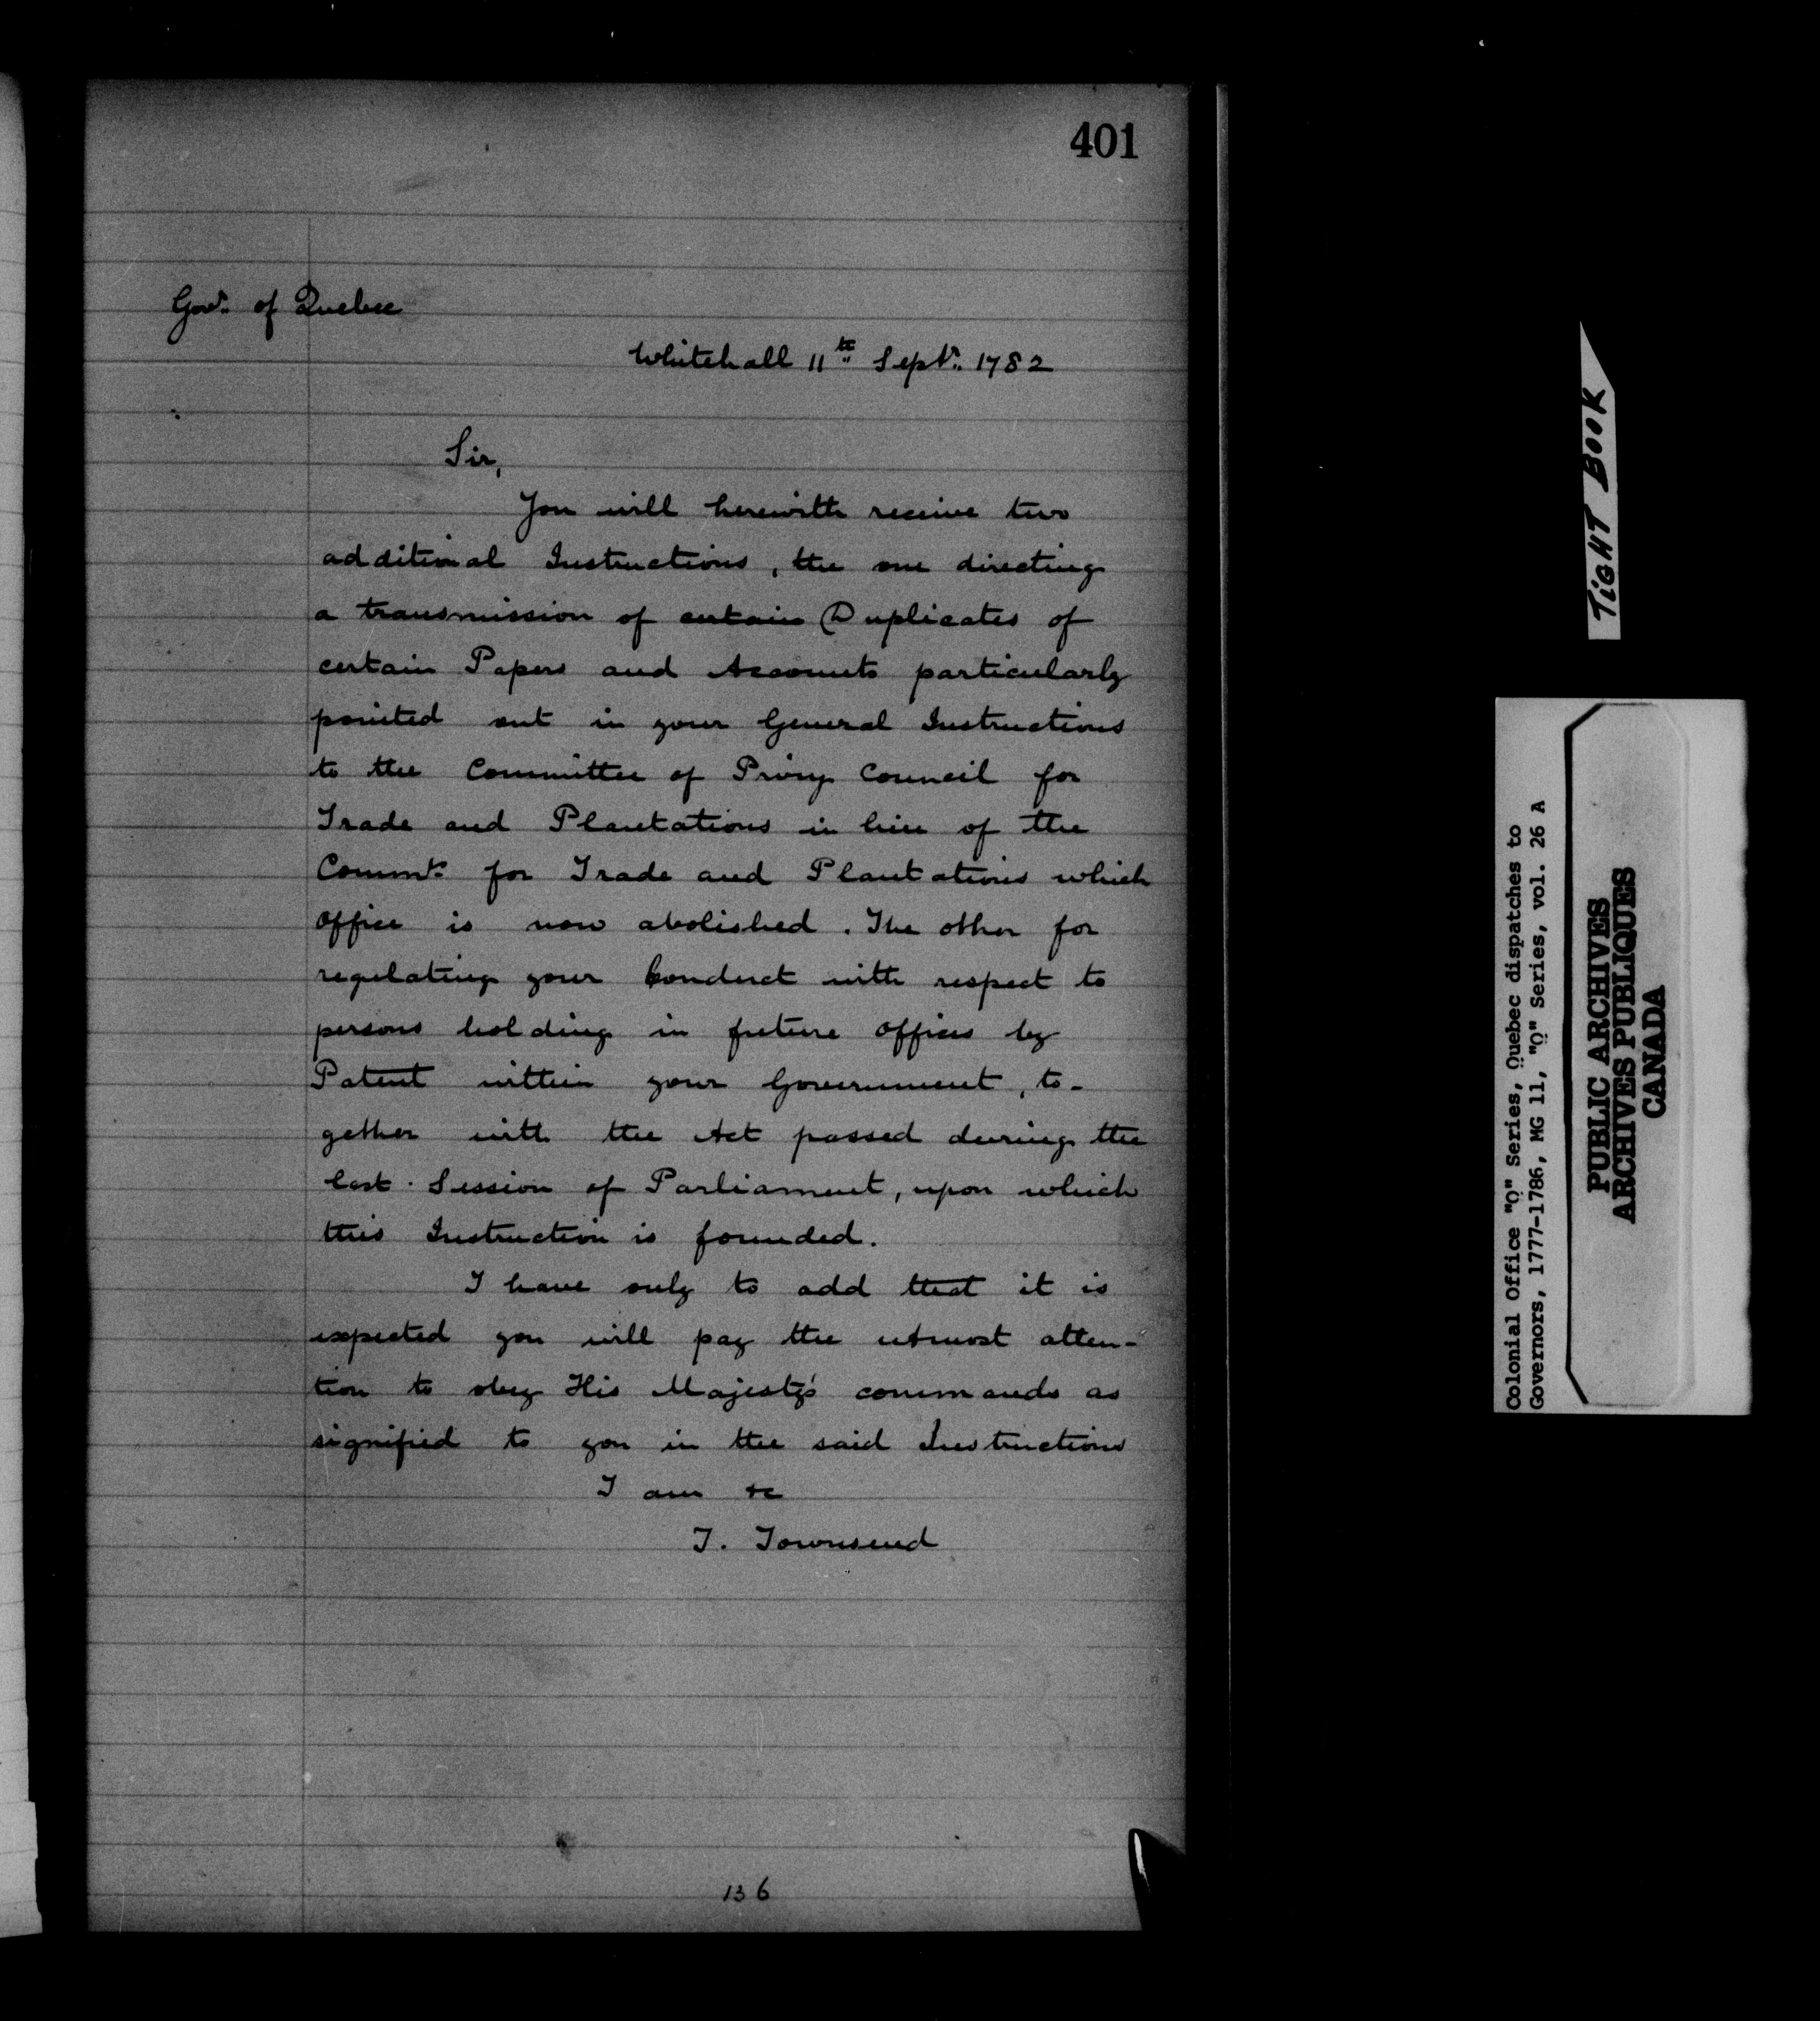 401
Govr. of Quebec
Whitehall 11th Septr. 1782
Sir,
You will herewith receive two
additional Instructions, the one directing
a transmission of certain Duplicates of
certain Papers and Accounts particularly
pointed out in your General Instructions
to the Committee of Privy Council for
Trade and Plantations in lieu of the
Commrs. for Trade and Plantations which
office is now abolished. The other for
regulating your Conduct with respect to
persons holding in future offices by
Patent within your Government, to-
gether with the Act passed during the
last Session of Parliament, upon which
this Instruction is founded.
I have only to add that it is
expected you will pay the utmost atten-
tion to obey His Majesty's commands as
signified to you in the said Instructions
I am &c
T. Townsend
136
TIGHT BOOK
Colonial Office "Q" Series, Quebec dispatches to
Governors, 1777-1786, MG 11, "Q" Series, vol. 26 A
PUBLIC ARCHIVES
ARCHIVES PUBLIQUES
CANADA